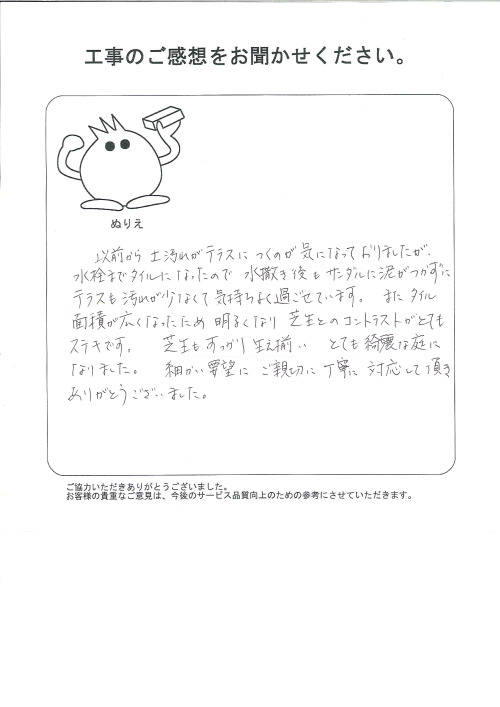 工事のご感想をお聞かせください。
ぬりえ
以前から 土汚れがテラスに つくのが 気になっておりましたが、
水栓までタイルになったので 水撒き後も サンダルに泥がつかずに
テラスも 汚れが少なくて 気持ちよく過ごせています。 また タイル
面積が広くなったため 明るくなり 芝生とのコントラストがとても
ステキです。 芝生も すっかり 生え揃い とても 綺麗な庭に
なりました。 細かい要望に ご親切に 丁寧に 対応して頂き
ありがとうございました。
ご協力いただきありがとうございました。
お客様の貴重なご意見は、今後のサービス品質向上のための参考にさせていただきます。